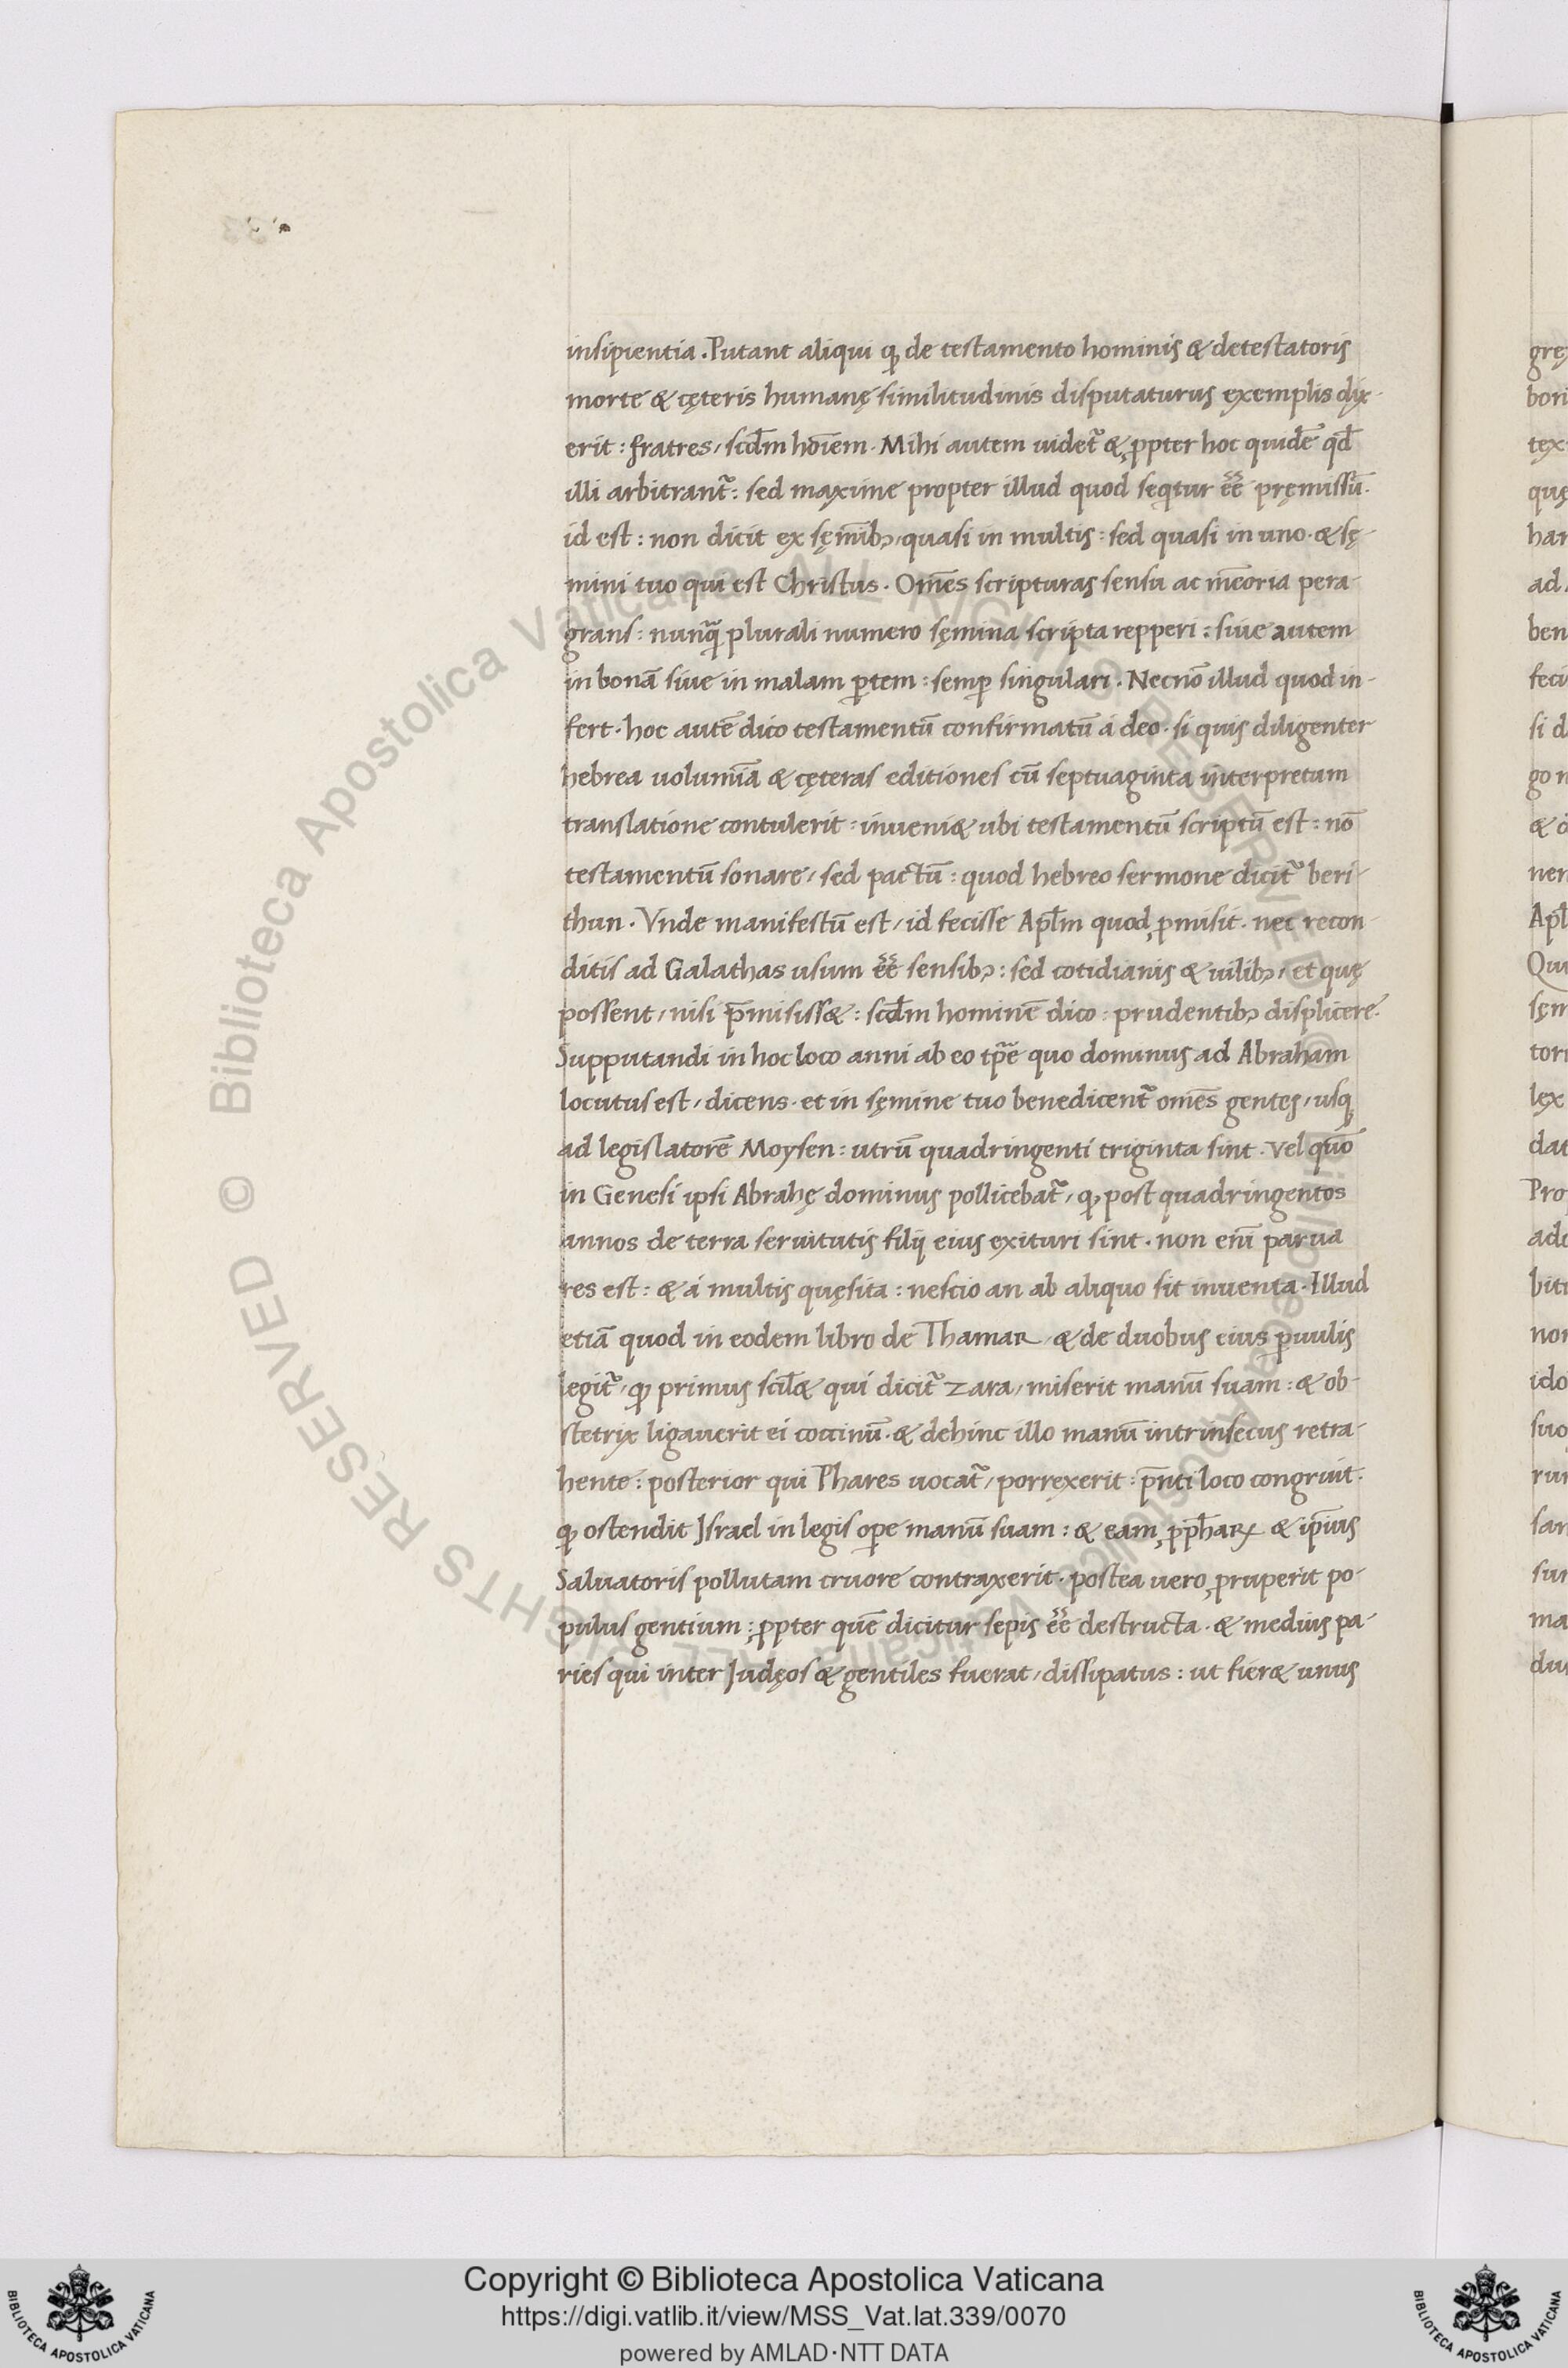 insipientia. Putant aliqui ꝙ de testamento hominis & detestatoris
morte & cęteris humanę similitudinis disputaturus exemplis dix-
erit: fratres, scd̄m hoīem. Mihi autem uidet̃ & ꝓpter hoc quidē qđ
illi arbitrant̃: sed maxime propter illud quod seqtur eē̃ pręmissū.
id est: non dicit ex sęmīb; quasi in multis: sed quasi in uno. & sę-
mini tuo qui est Christus. Om̄es scripturas sensu ac mēoria pera-
grans: nunq̃ꝫ plurali numero sęmina scripta repperi: siue autem
in bonā siue in malam ꝑtem: semꝑ singulari. Necnō illud quod in-
fert. hoc autē dico testamentū confirmatū á deo. si quis diligenter
hebrea uolumīa & cęteras editiones cū septuaginta interpretum
translatione contulerit: inueni& ubi testamentū scriptū est: nō
testamentū sonare, sed pactū: quod hebreo sermone dicit̃ beri-
thun. Vnde manifestū est, id fecisse Apl̄m quod ꝓmisit. nec recon-
ditis ad Galathas usum eē̃ sensib;: sed cotidianis & uilib;, et quę
possent, nisi p̄misiss&: scd̄m hominē dico: prudentib; displicere.
Supputandi in hoc loco anni ab eo tp̄e quo dominus ad Abraham
locutus est, dicens. et in sęmine tuo benedicent̃ omēs gentes, usqꝫ
ad legislatorē Moysen: utrū quadringenti triginta sint. Vel quō
in Genesi ipsi Abrahę dominus pollicebat̃, ꝙ post quadringentos
annos de terra seruitutis filij eius exituri sint. non enī parua
res est: & á multis quęsita: nescio an ab aliquo sit inuenta. Illud
etiā quod in eodem libro de Thamar, & de duobus eius ꝑuulis
legit̃, ꝙ primus scil& qui dicit̃ Zara, miserit manū suam: & ob-
stetrix ligauerit ei coccinū. & dehinc illo manū intrinsecus retra-
hente: posterior qui Phares uocat̃, porrexerit: p̄nti loco congruit.
ꝙ ostendit Israel in legis oꝑe manū suam: & eam ꝓph̄aꝝ & ip̄ius
Saluatoris pollutam cruore contraxerit. postea uero ꝓruperit po-
pulus gentium: ꝓpter quē dicitur sepis eē̃ destructa. & medius pa-
ries qui inter Iudęos & gentiles fuerat, dissipatus: ut fier& unus
© Biblioteca Apostolica Vaticana ALL RIGHTS RESERVED © Biblioteca Apostolica Vaticana ALL RIGHTS RESERVED
Copyright © Biblioteca Apostolica Vaticana
https://digi.vatlib.it/view/MSS_Vat.lat.339/0070
powered by AMLAD·NTT DATA
BIBLIOTECA APOSTOLICA VATICANA
BIBLIOTECA APOSTOLICA VATICANA